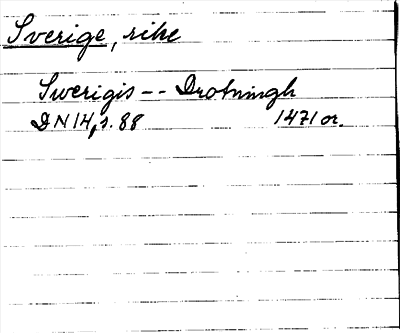 Sverige, rike
Swerigis -- Drotningh
DN 14, s. 88 1471 or.